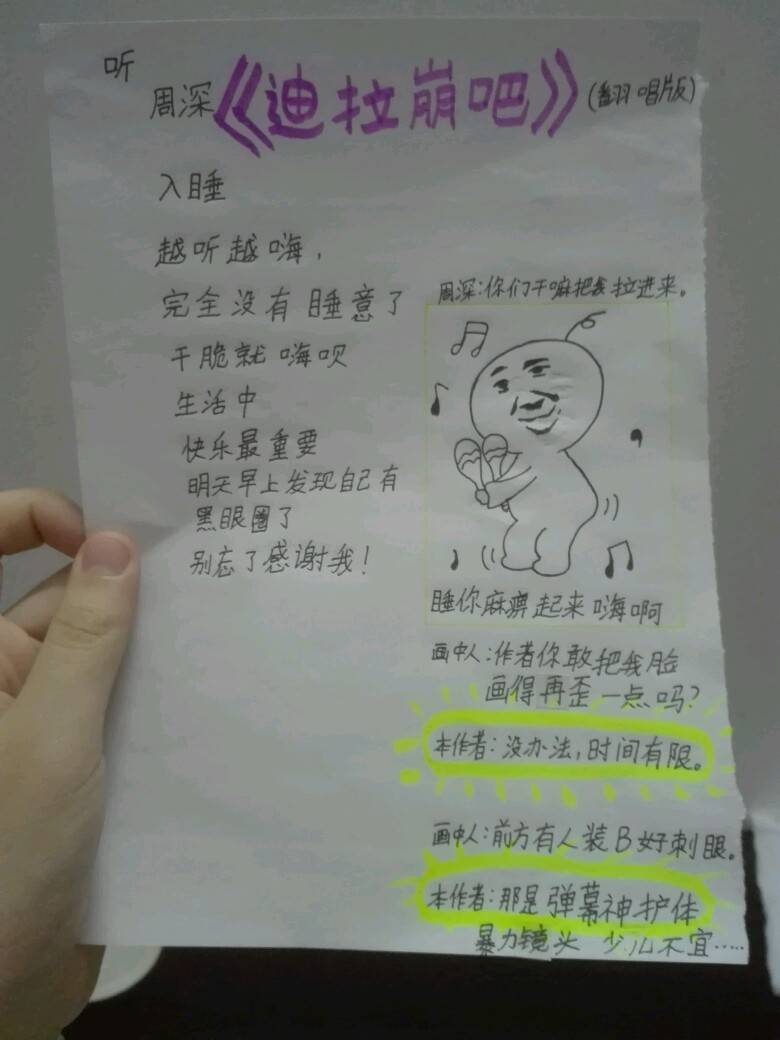 听
周深《迪拉崩吧》(翻唱版)
入睡
越听越嗨，
完全没有睡意了
干脆就嗨呗
生活中
快乐最重要
明天早上发现自己有
黑眼圈了
别忘了感谢我！
周深：你们干嘛把我拉进来。
睡你麻痹起来嗨啊
画中人：作者你敢把我脸
画得再歪一点吗？
本作者：没办法，时间有限。
画中人：前方有人装B好刺眼。
本作者：那是弹幕神护体
暴力镜头 少儿不宜……